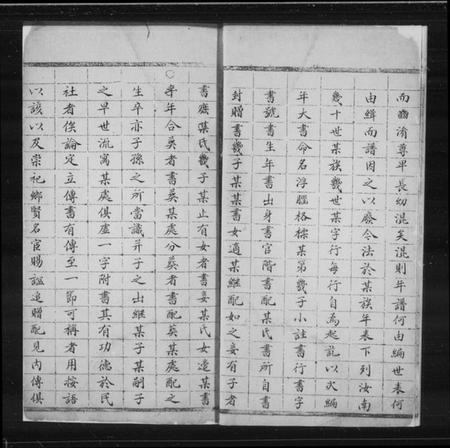 而幽淆尊卑長幼混矣混則年譜何由編世表何
由緝而譜因之以廢今法於某族年表下列汝南
幾十世某族幾世某字行每行自為起訖以次編
年大書命名浮腦格標某第幾子小註書行書字
書號書生年書出身書官階書配某氏書所自書
封贈書幾子某某書女適某繼配如之妾有子者
書庶某氏幾子某止有女者書妾某氏女適某書
卒年合葬者書葬某處分葬者書配葬某處配之
生卒亦子孫之所當識并子之出繼某子某嗣子
之早世流寓某處俱虛一字附書其有功德於民
社者俟論定立傳書有傳至一節可稱者用按語
以該以及崇祀鄉賢名宦賜謚追贈配見內傳俱